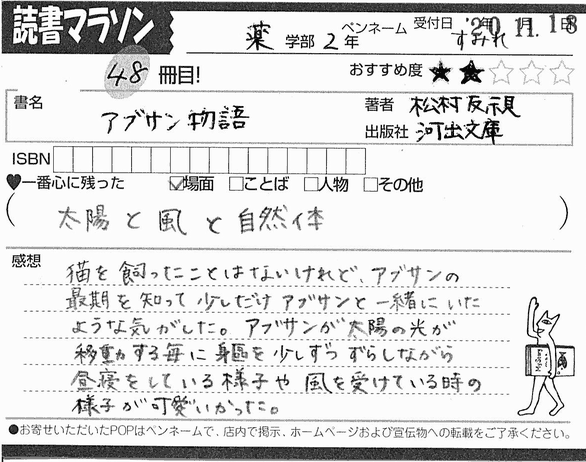 読書マラソン
薬 学部 2 年
ペンネーム すみれ
受付日 '20 年 11 月 18 日
48 冊目!
おすすめ度 ★★☆☆☆
書名 アブサン物語
著者 松村友視
出版社 河出文庫
ISBN
♥一番心に残った ☑場面 □ことば □人物 □その他
(太陽と風と自然体)
感想
猫を飼ったことはないけれど、アブサンの
最期を知って少しだけアブサンと一緒にいた
ような気がした。アブサンが太陽の光が
移動する毎に身軀を少しずつずらしながら
昼寝をしている様子や風を受けている時の
様子が可愛いかった。
●お寄せいただいたPOPはペンネームで、店内で掲示、ホームページおよび宣伝物への転載をご了承ください。